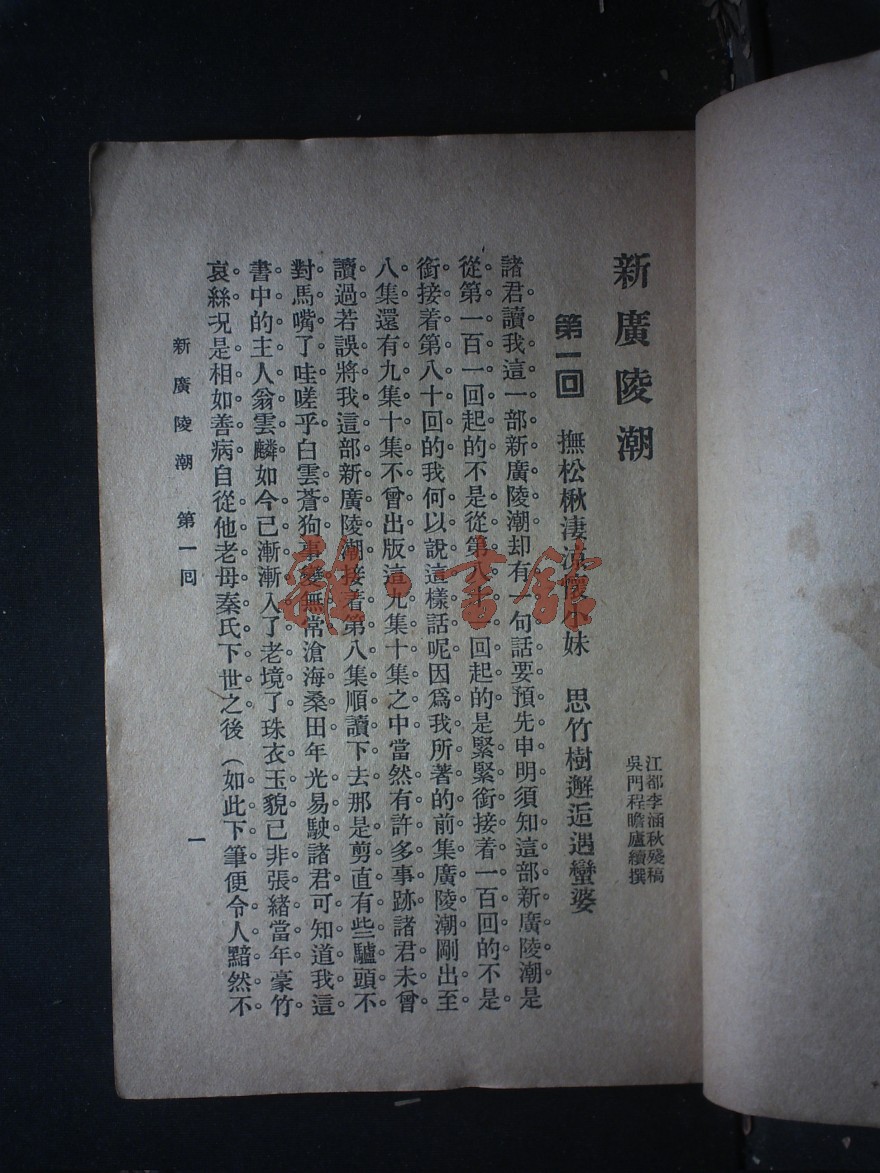 新廣陵潮
江都李涵秋殘稿
吳門程瞻廬續撰
第一回 撫松楸淒涼懷小妹 思竹樹邂逅遇蠻婆
諸君讀我這一部新廣陵潮却有一句話要預先申明須知這部新廣陵潮是
從第一百一回起的不是從第八十一回起的是緊緊銜接着一百回的不是
銜接着第八十回的我何以說這樣話呢因爲我所著的前集廣陵潮剛出至
八集還有九集十集不曾出版這九集十集之中當然有許多事跡諸君未曾
讀過若誤將我這部新廣陵潮接着第八集順讀下去那是剪直有些驢頭不
對馬嘴了哇嗟乎白雲蒼狗事變無常滄海桑田年光易駛諸君可知道我這
書中的主人翁雲麟如今已漸漸入了老境了珠衣玉貌已非張緒當年豪竹
哀絲況是相如善病自從他老母秦氏下世之後（如此下筆便令人黯然不
新廣陵潮 第一回
一
雜·書館